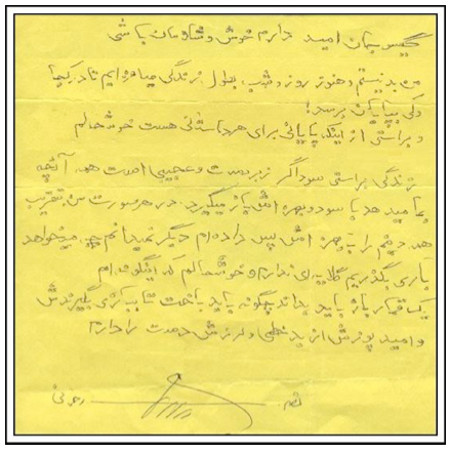 گیسو جان امید دارم خوش و شادمان باشی
من بد نیستم و هنوز روز و شب، بطول زندگی میافزایم تا در کجا
و کی بپایان برسد!
و براستی از اینکه پایانی برای هر داستانی هست خوشحالم
زندگی براستی سوداگر زبردست و عجیبی است آنچه
بما میدهد با سود و بهره اش باز میگیرد. در هر صورت من بتقریب
همه دینم را با بهره اش پس داده ام دیگر نمیدانم چه میخواهد
باری بگذریم گلایه ای ندارم و خوشحالم که اینگونه ام
یک قمار باز باید بداند چگونه باید باخت تا ببازی بگیرندش
و امید پوزش از بدخطی و لرزش دست را دارم